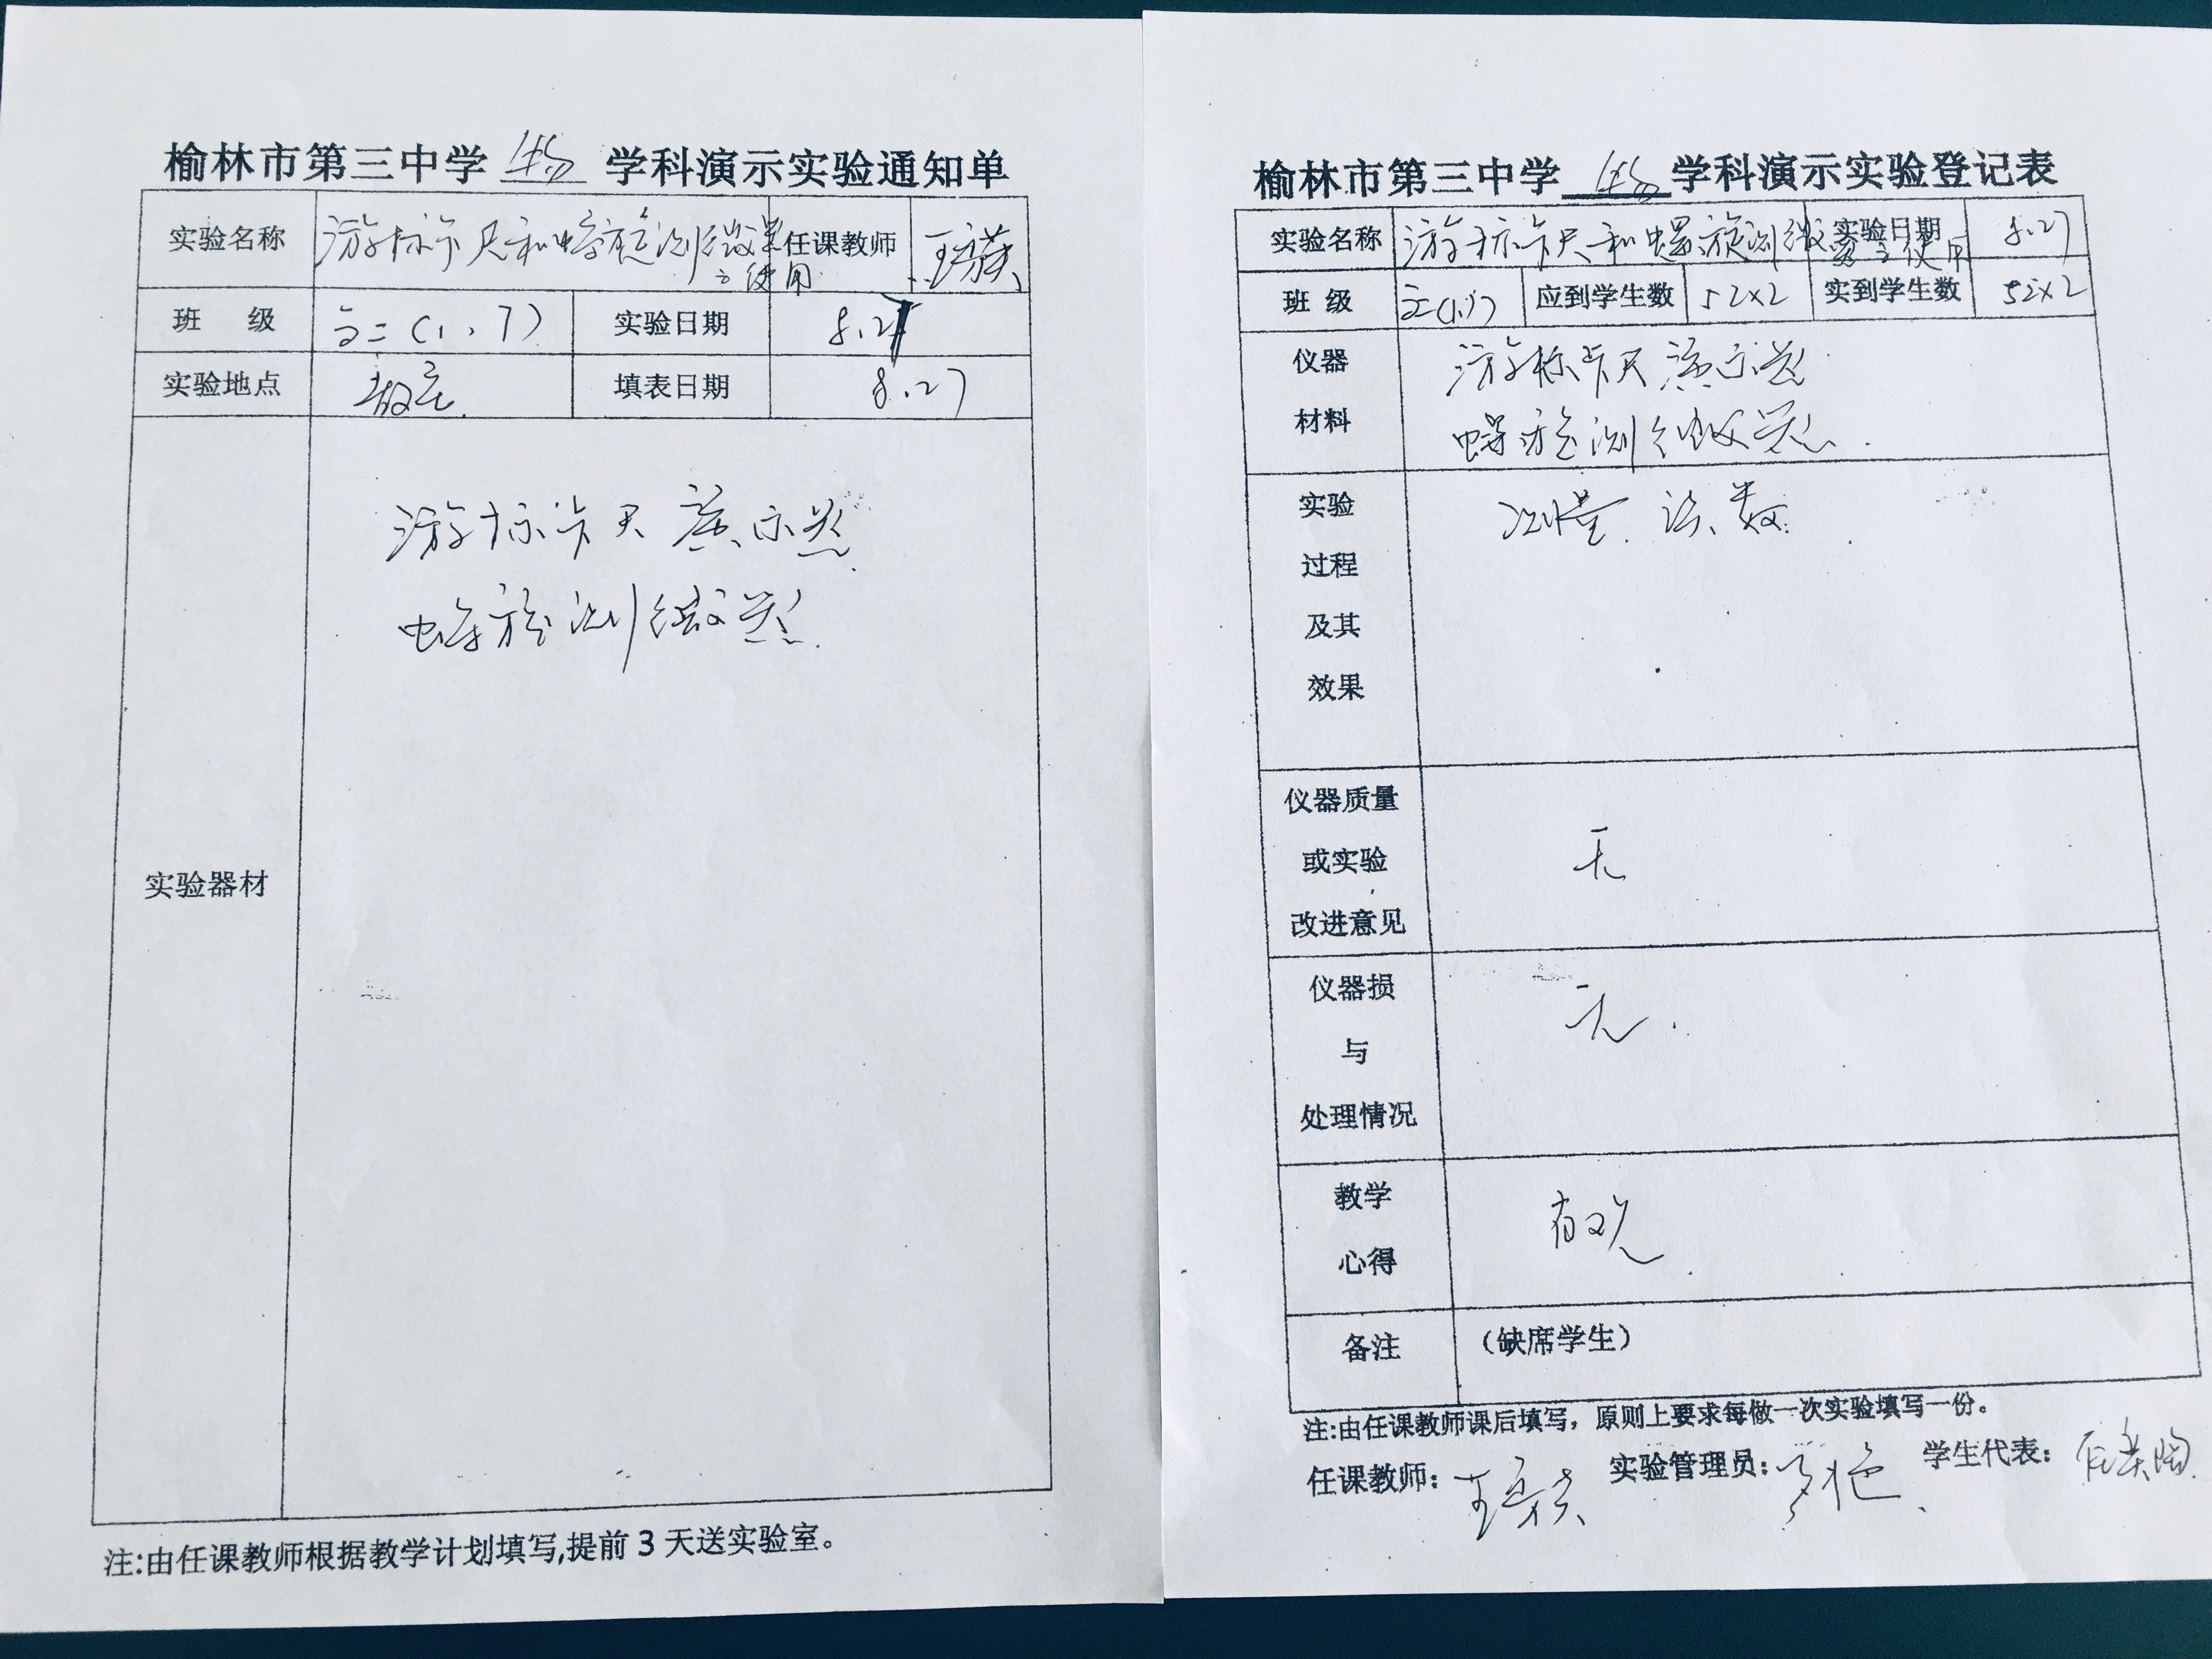 榆林市第三中学 学科演示实验通知单
实验名称 游标卡尺和螺旋测微器之使用 任课教师 王
班 级 高二(1、7) 实验日期 8.27
实验地点 教室. 填表日期 8.27
实验器材
游标卡尺演示器.
螺旋测微器.
注:由任课教师根据教学计划填写,提前3天送实验室。
榆林市第三中学 学科演示实验登记表
实验名称 游标卡尺和螺旋测微器之使用 实验日期 8.27
班 级 高二(1,7) 应到学生数 52×2 实到学生数 52×2
仪器
材料
游标卡尺演示器
螺旋测微器.
实验
过程
及其
效果
测量. 读数.
仪器质量
或实验
改进意见
无
仪器损
与
处理情况
无.
教学
心得
直观.
备注 （缺席学生）
注:由任课教师课后填写，原则上要求每做一次实验填写一份。
任课教师: 王 实验管理员: 学生代表: 任